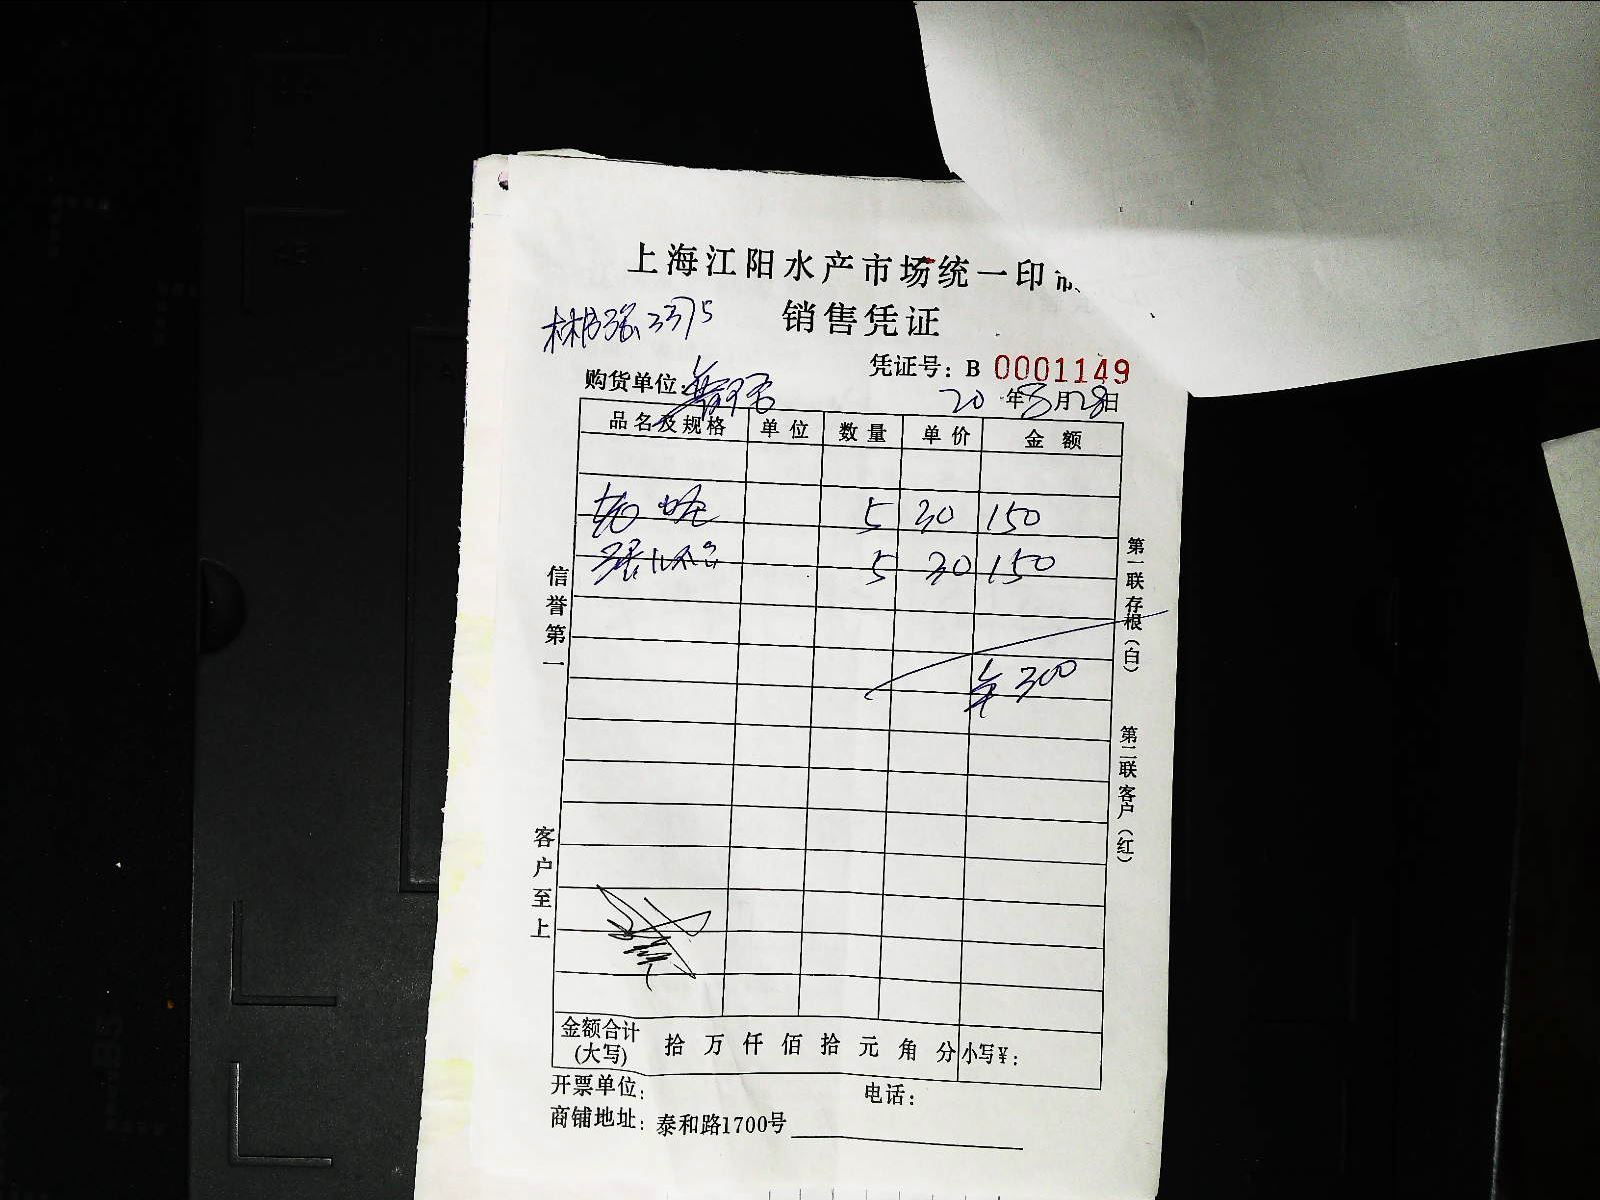 上海江阳水产市场统一印
销售凭证
3375
凭证号：B 0001149
购货单位：
20 年 8 月 28 日
品名及规格 单位 数量 单价 金额
5 30 150
5 30 150
300
信誉第一
客户至上
第一联存根（白）
第二联客户（红）
金额合计（大写） 拾 万 仟 佰 拾 元 角 分 小写¥：
开票单位： 电话：
商铺地址：泰和路1700号